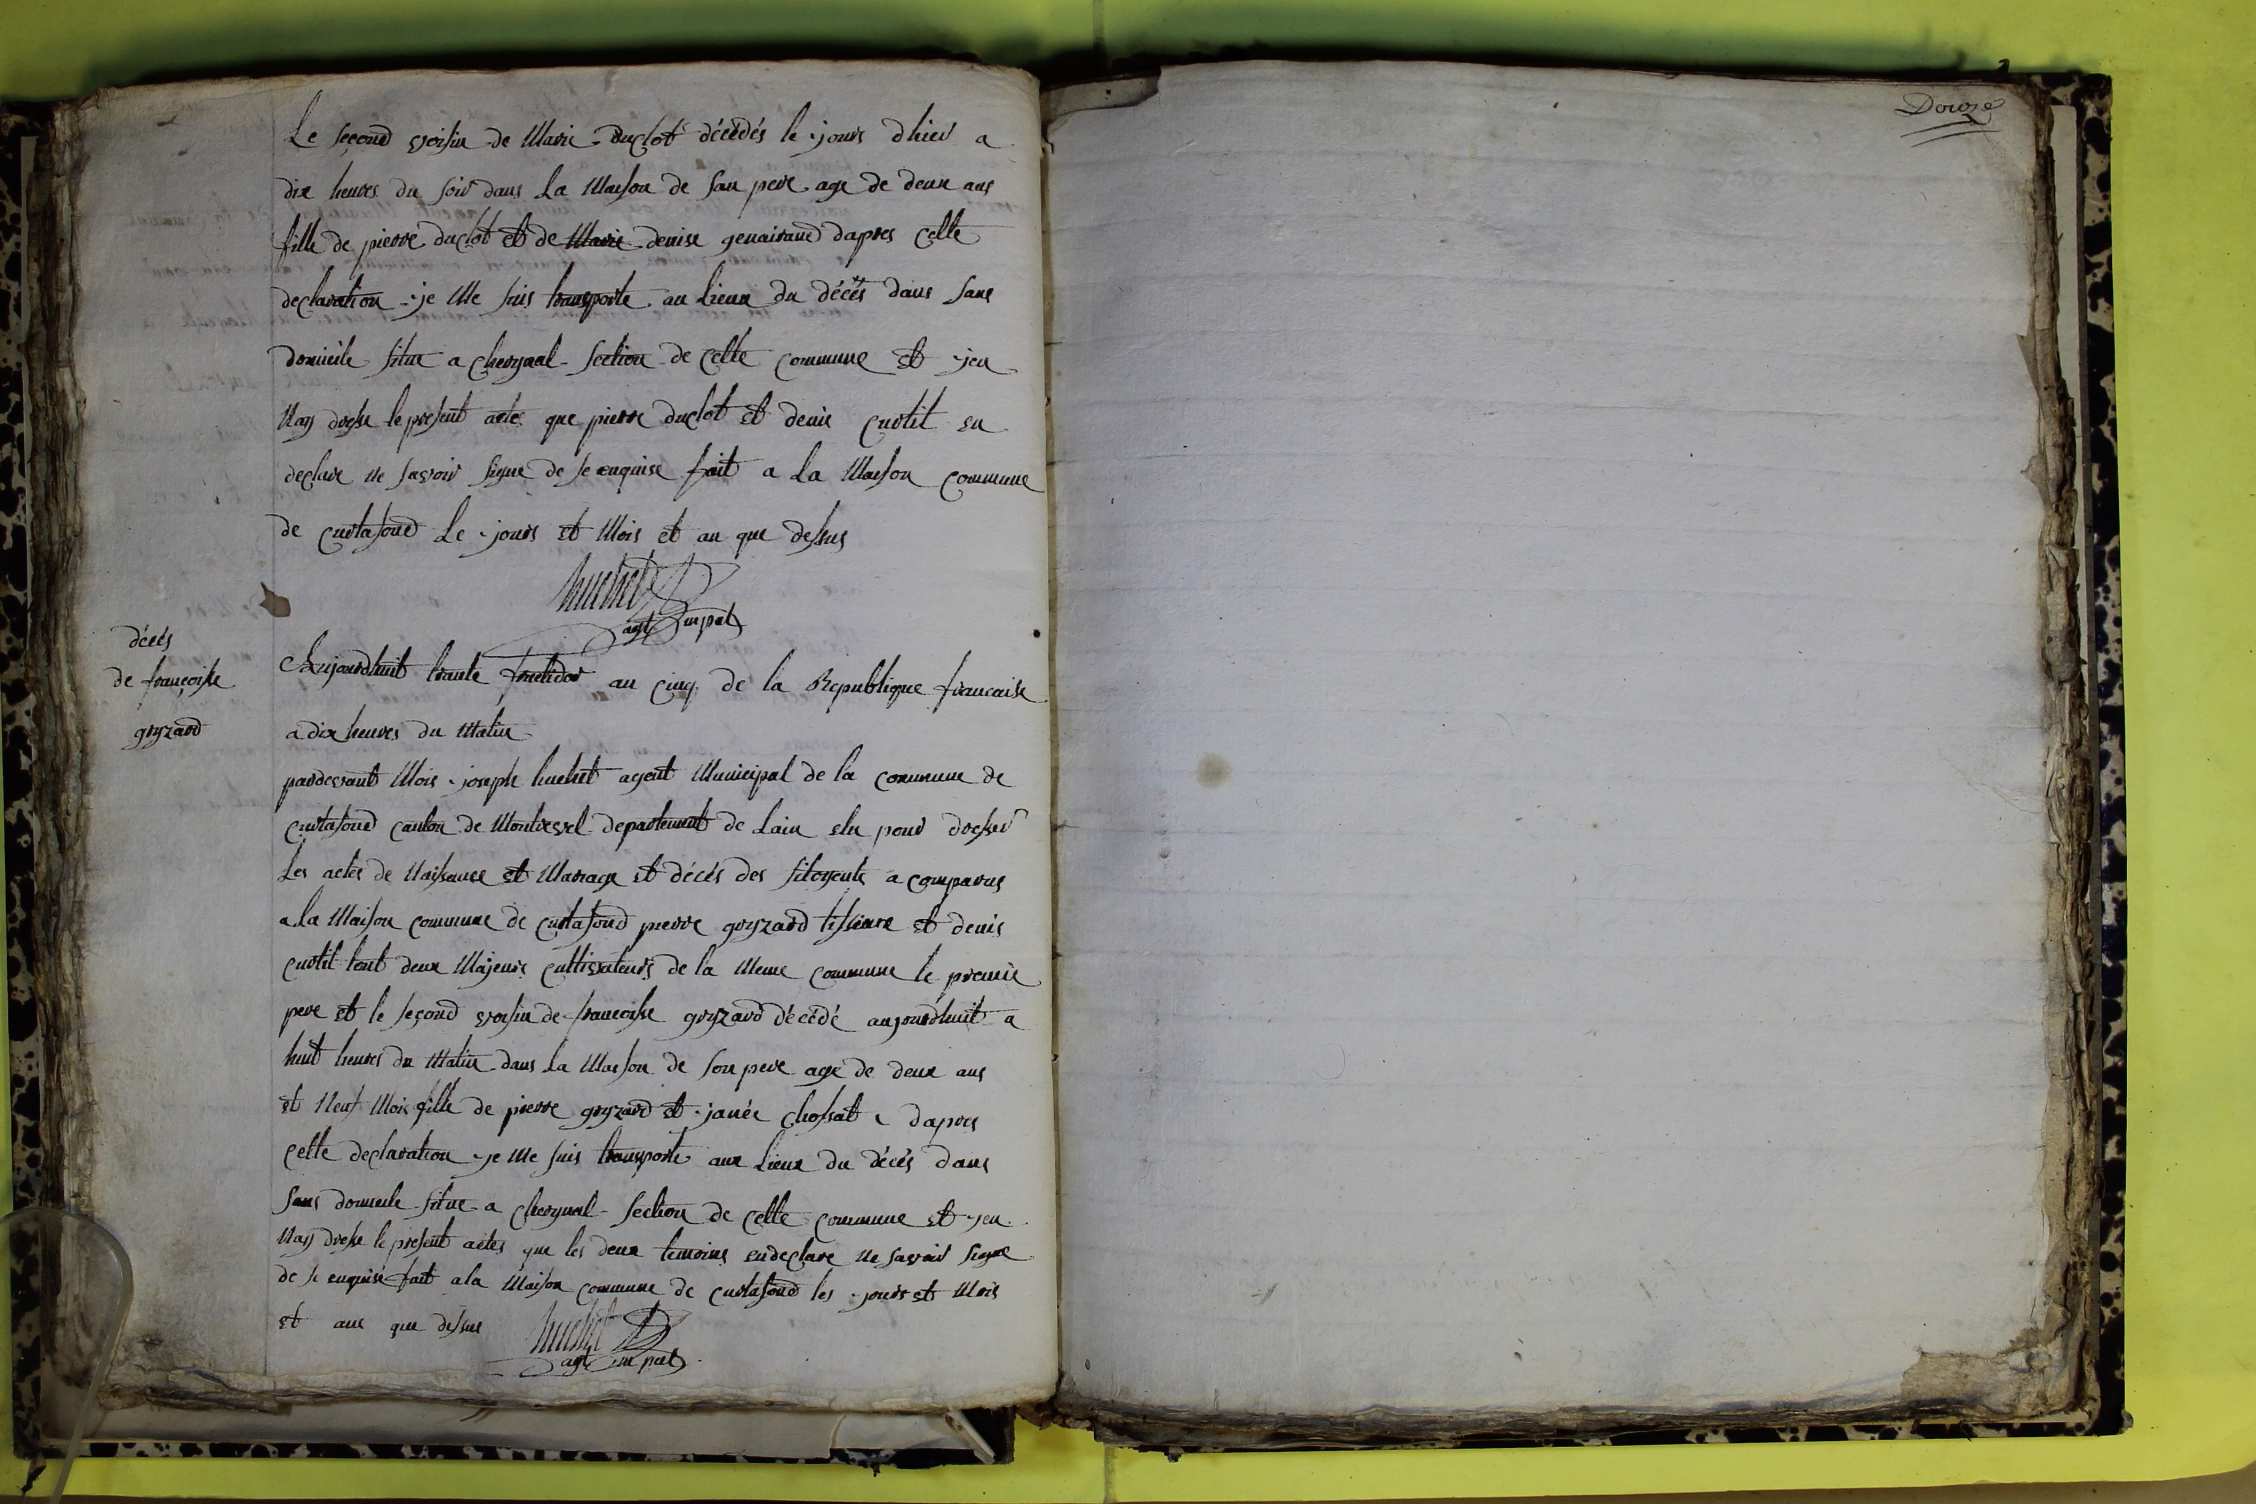 Le second voisin de Marie duclot décédés le jours dhier a
dix heures du soir dans La Maison de San pere age de deux ans
fille de pierre duclot et de Marie denise genairaud dapres Celle
declaration je Me suis transporte au Lieux du décés dans Sans
domicile situe a Chevynal Section de Celle Commune et jen
Nay dresse le present acte que pierre duclot et denis Curtil en
declare ne savoir signe de se enquise fait a La Maison Commune
de Curtafond Le jours et Mois et an que dessus
huchet
agt mpal
décés
de francoisse
gryzard
Aujourdhuit trante fructidor an Cinq de la Republique francaise
a dix heures du Matin
pardevant Mois joseph huchet agent Municipal de la Commune de
Curtafond Canton de Montrevel departement de Lain elu pour dresser
Les actes de Naissance et Mariage et décés des sitoyents a Comparus
a La Maison Commune de Curtafond pierre gryzard tissieure et denis
Curtil tout deux Majeurs Cultivateurs de la Meme Commune le premie
pere et le second voisin de francoisse gryzard décédé aujourdhuit a
huit heures du Matin dans La Maison de Son pere age de deux ans
et Neuf Mois fille de pierre gryzard et janée Chossat dapres
Celle declaration je Me suis transporte aux Lieux du décés dans
Sans domicile situe a Chevynal Section de Celle Commune et jen
Nay dresse le present actes que les deux temoins en declare Ne savoir signe
de se enquise fait a la Maison Commune de Curtafond les jours et Mois
et ans que dessus
huchet
agt mpal
Douze